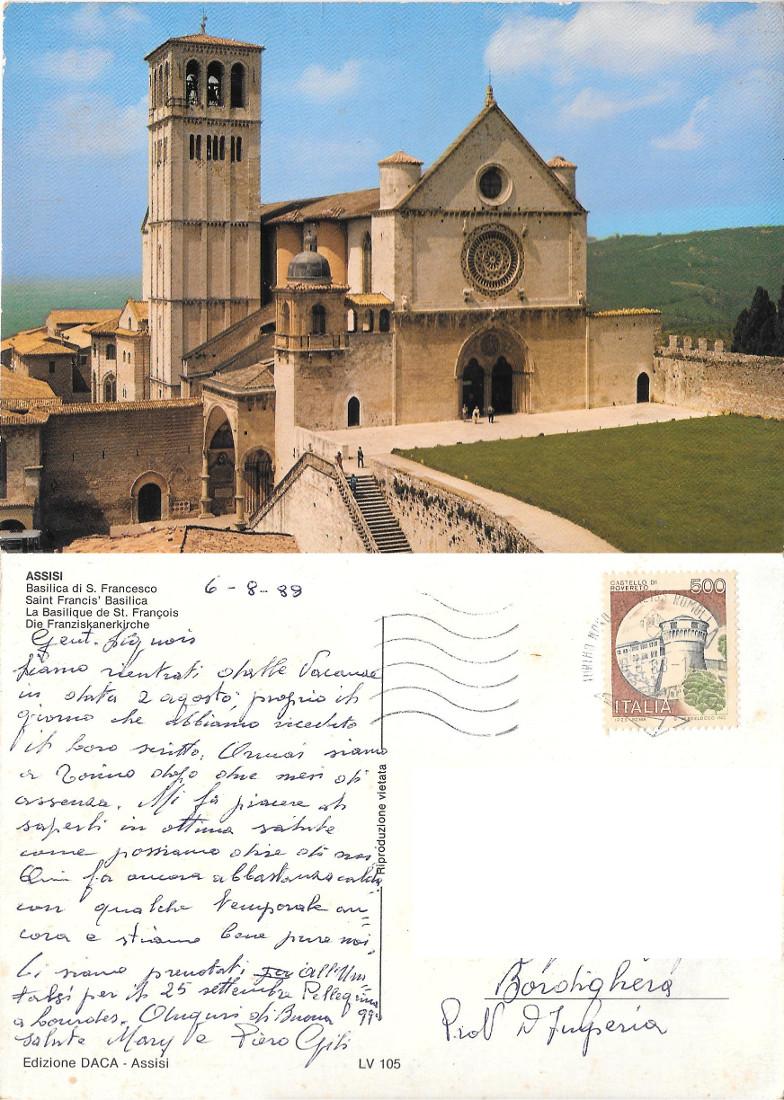 ASSISI
Basilica di S. Francesco
Saint Francis' Basilica
La Basilique de St. François
Die Franziskanerkirche
6-8-89
Gent. Signori
Siamo rientrati dalle Vacanze
in data 2 agosto, proprio il
giorno che abbiamo ricevuto
il loro scritto. Ormai siamo
a Torino dopo due mesi di
assenza. Mi fa piacere di
saperli in ottima salute
come possiamo dire di noi
Qui fa ancora abbastanza caldo
con qualche temporale an=
cora e stiamo bene pure noi,
Ci siamo prenotati all'Uni=
talsi per il 25 settembre Pellegrina
a Lourdes. Auguri di Buona
salute Mary e Piero
Edizione DACA - Assisi
LV 105
Riproduzione vietata
CASTELLO DI
ROVERETO
500
ITALIA
Bordighera
Prov D'Imperia